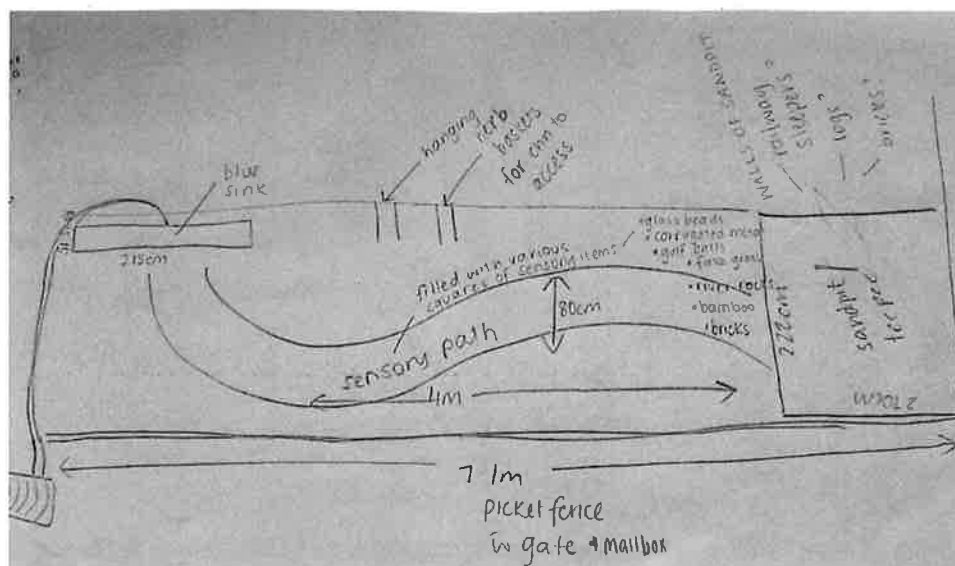 blue
sink
215cm
hanging
herb
baskets
for chn to
access
WALLS OF SANDPIT
railway
sleepers
logs
bricks
filled with various
squares of sensory items
glass beads
corrugated metal
golf balls
river rocks
bamboo
bricks
sensory path
80cm
4m
sandpit
270cm
7 1m
picket fence
w gate + mailbox